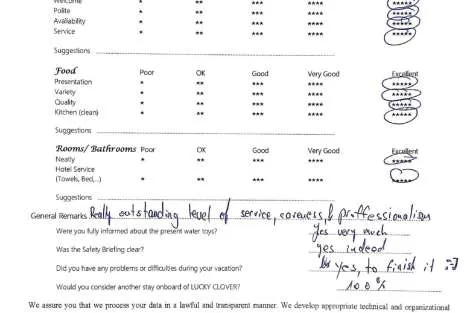 Welcome * ** *** **** *****
Polite * ** *** **** *****
Availability * ** *** **** *****
Service * ** *** **** *****
Suggestions
Food Poor OK Good Very Good Excellent
Presentation * ** *** **** *****
Variety * ** *** **** *****
Quality * ** *** **** *****
Kitchen (clean) * ** *** **** *****
Suggestions
Rooms/ Bathrooms Poor OK Good Very Good Excellent
Neatly * ** *** **** *****
Hotel Service
(Towels, Bed,..) * ** *** **** *****
Suggestions
General Remarks Really outstanding level of service, careness, & proffessionalism
Were you fully informed about the present water toys? Yes very much
Was the Safety Briefing clear? yes indeed
Did you have any problems or difficulties during your vacation? yes, to finish it :-)
Would you consider another stay onboard of LUCKY CLOVER? 100%
We assure you that we process your data in a lawful and transparent manner. We develop appropriate technical and organizational